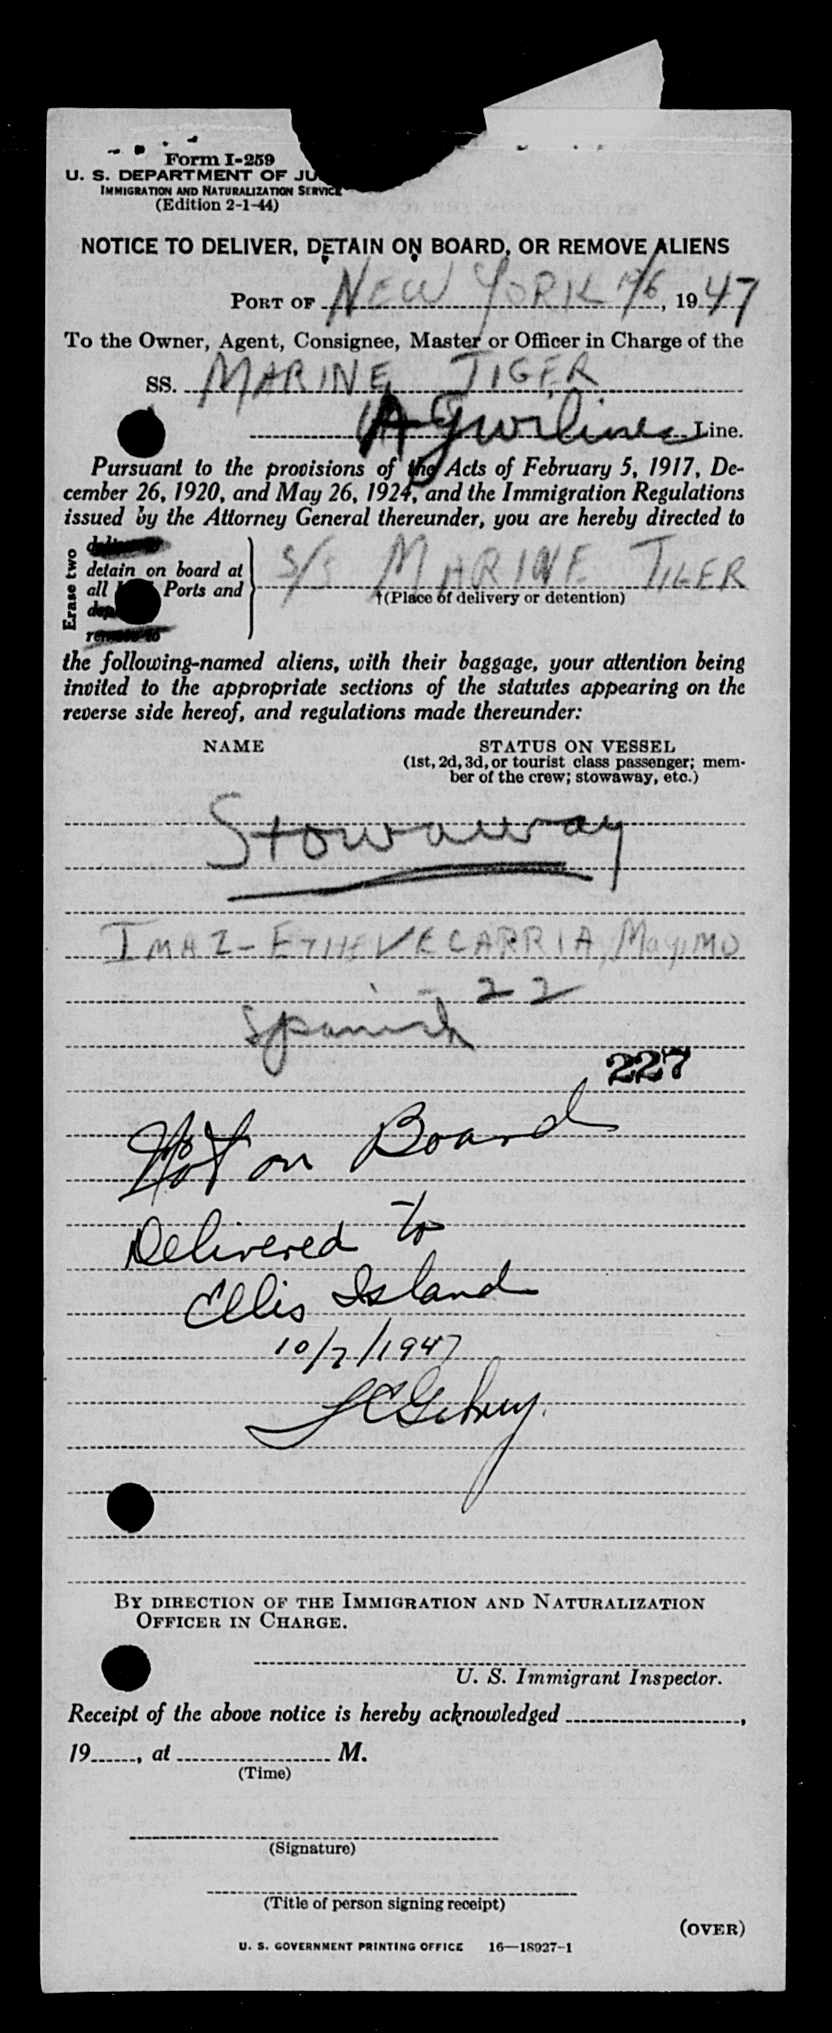 Form I-259
U. S. DEPARTMENT OF JU
IMMIGRATION AND NATURALIZATION SERVICE
(Edition 2-1-44)
NOTICE TO DELIVER, DETAIN ON BOARD, OR REMOVE ALIENS
PORT OF NEW YORK 10/6, 1947
To the Owner, Agent, Consignee, Master or Officer in Charge of the
SS. MARINE TIGER
Agwilines Line.
Pursuant to the provisions of the Acts of February 5, 1917, De-
cember 26, 1920, and May 26, 1924, and the Immigration Regulations
issued by the Attorney General thereunder, you are hereby directed to
Erase two
detain on board at
all Ports and
remove to
S/S MARINE TIGER
†(Place of delivery or detention)
the following-named aliens, with their baggage, your attention being
invited to the appropriate sections of the statutes appearing on the
reverse side hereof, and regulations made thereunder:
NAME STATUS ON VESSEL
(1st, 2d, 3d, or tourist class passenger; mem-
ber of the crew; stowaway, etc.)
Stowaway
IMAZ-ETHEVECARRIA,
Spanish - 22
227
Not on Board
Delivered to
Ellis Island
10/7/1947
BY DIRECTION OF THE IMMIGRATION AND NATURALIZATION
OFFICER IN CHARGE.
U. S. Immigrant Inspector.
Receipt of the above notice is hereby acknowledged ,
19 , at M.
(Time)
(Signature)
(Title of person signing receipt)
(OVER)
U. S. GOVERNMENT PRINTING OFFICE 16—18927-1